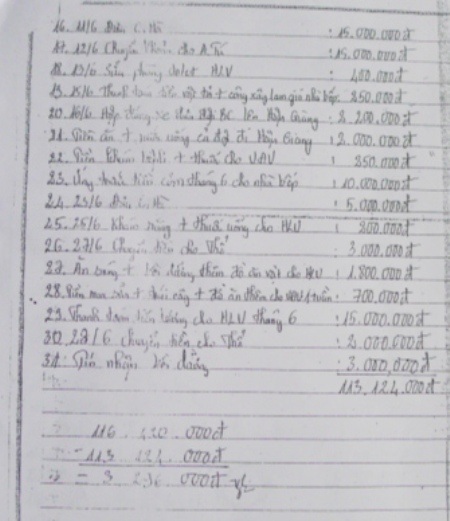 16. 11/6 Đưa C. Hà : 15.000.000đ
17. 12/6 Chuyển khoản cho A. : 15.000.000đ
18. 13/6 phòng HLV : 400.000đ
19. 15/6 Thanh toán tiền vật tư + công xây làm nhà bếp 850.000đ
20. 16/6 Hợp đồng xe đưa đội BC lên Hậu Giang : 2.200.000đ
21. Tiền ăn + nước uống cả đội đi Hậu Giang : 2.000.000đ
22. Tiền khám + thuốc cho VĐV : 850.000đ
23. Ứng trước tiền cơm tháng 6 cho nhà bếp : 10.000.000đ
24. 23/6 Đưa C. Hà : 5.000.000đ
25. 25/6 Khám răng + thuốc uống cho HLV : 200.000đ
26. 27/6 Chuyển tiền cho Thể : 3.000.000đ
27. Ăn sáng + bồi dưỡng thêm đồ ăn vặt cho HLV : 1.800.000đ
28. Tiền mua sữa + trái cây + đồ ăn thêm cho 1 tuần : 700.000đ
29. Thanh toán tiền lương cho HLV tháng 6 : 15.000.000đ
30. 29/6 Chuyển tiền cho Thể : 2.000.000đ
31. Tiền nhận bồi dưỡng : 3.000.000đ
113.124.000đ
116 000đ
- 113 000đ
= 3 000đ